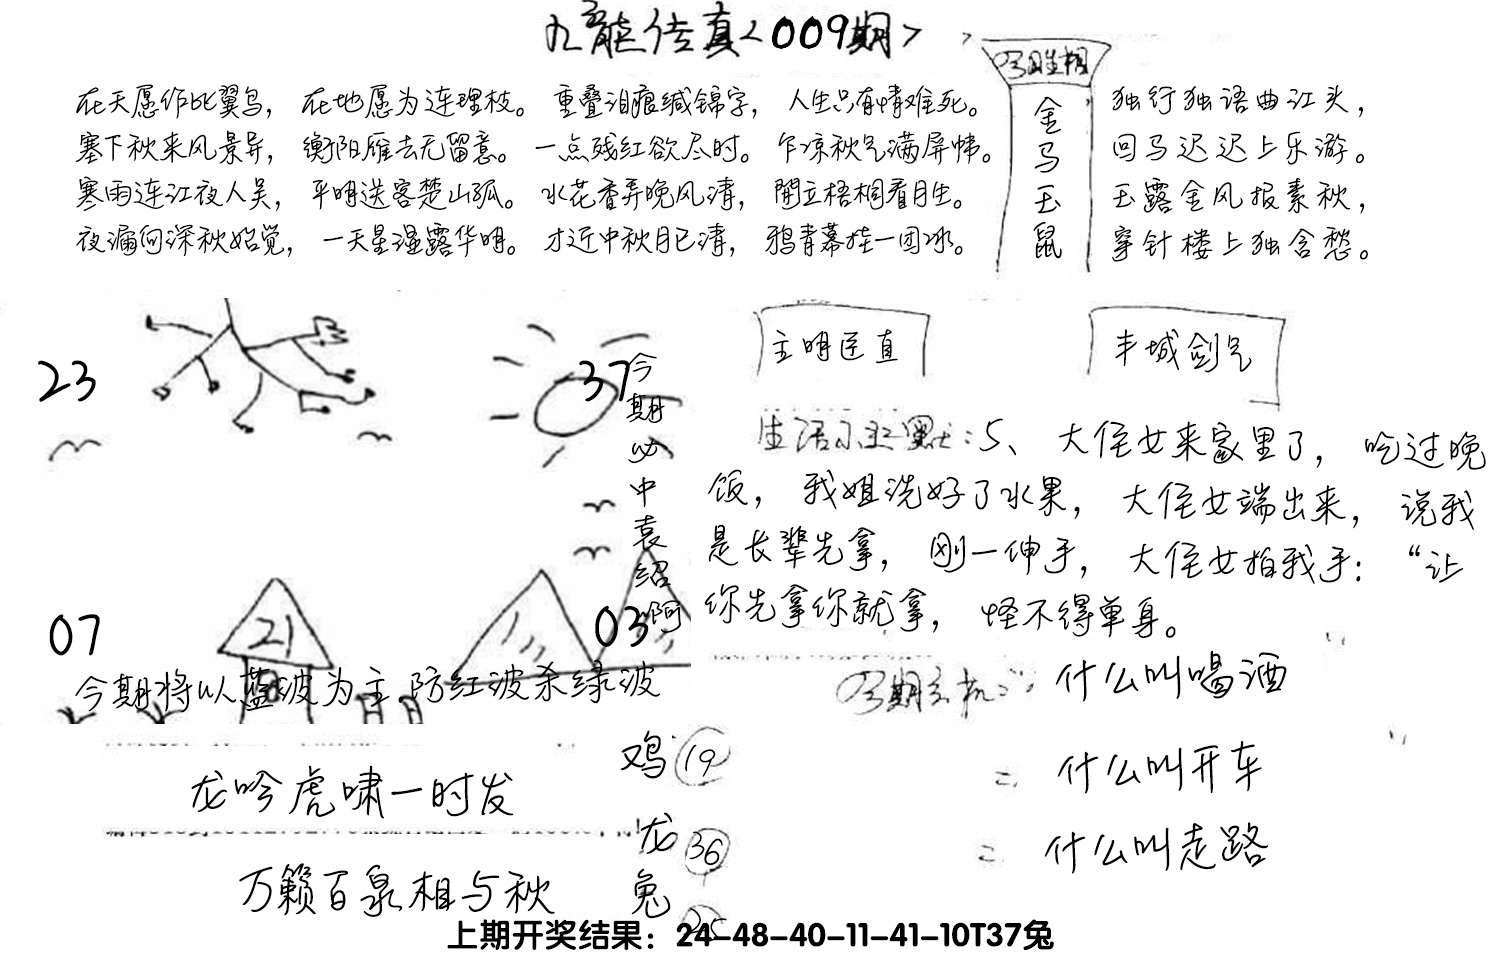 九龙传真<009期>
今期生相
金马玉鼠
在天愿作比翼鸟， 在地愿为连理枝。 重叠泪痕缄锦字， 人生只有情难死。
塞下秋来风景异， 衡阳雁去无留意。 一点残红欲尽时。 乍凉秋气满屏帏。
寒雨连江夜入吴， 平明送客楚山孤。 水花香弄晚风清， 閒立梧桐看月生。
夜漏何深秋始觉， 一天星湿露华明。 才近中秋月已清， 鸦青幕挂一团冰。
独行独语曲江头，
回马迟迟上乐游。
玉露金风报素秋，
穿针楼上独含愁。
23
37
07
21
03
今期必中袁绍啊
今期将以蓝波为主 防红波杀绿波
主明臣直
丰城剑气
生活小幽默：5、 大侄女来家里了， 吃过晚
饭， 我姐洗好了水果， 大侄女端出来， 说我
是长辈先拿， 刚一伸手， 大侄女拍我手： “让
你先拿你就拿， 怪不得单身。
今期玄机 什么叫喝酒
二 什么叫开车
二 什么叫走路
龙吟虎啸一时发
万籁百泉相与秋
鸡 19
龙 36
兔 25
上期开奖结果：24-48-40-11-41-10T37兔